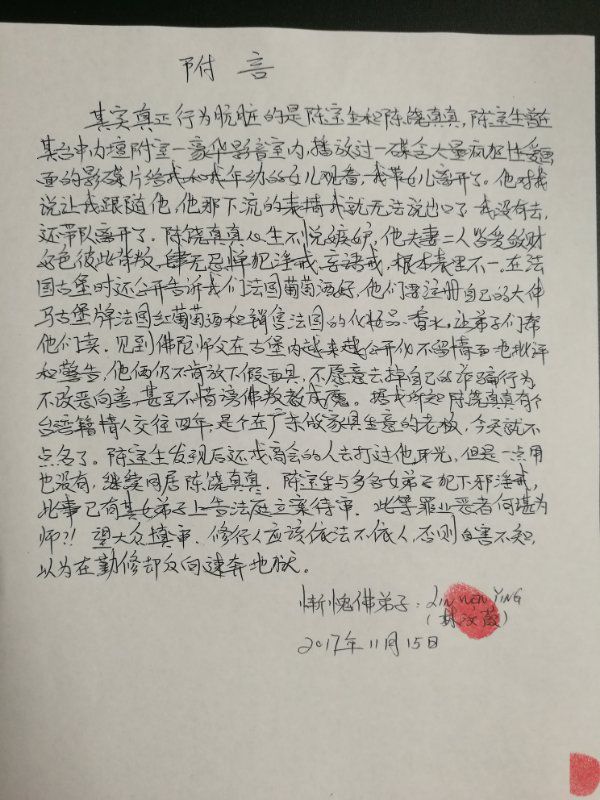 附言
其实真正行为肮脏的是陈宝生和陈饶真真，陈宝生曾在
其台中内坛附室一豪华影音室内，播放过一碟含大量疯狂性爱画
面的影碟片给我和我年幼的女儿观看，我带女儿离开了。他对我
说让我跟随他，他那下流的表情我就无法说出口了 我没有去，
还带队离开了．陈饶真真心生不悦嫉妒，他夫妻二人皆爱敛财
好色彼此 肆无忌惮犯淫戒，妄语戒，根本表里不一．在法
国古堡时还公开告诉我们法国葡萄酒好，他们要注册自己的大伸
马古堡牌法国红葡萄酒和销售法国的化妆品．香水，让弟子们帮
他们卖．见到佛陀师父在古堡内越来越公开化不留情面地批评
和警告，他俩仍不肯放下假面具，不愿意去掉自己的诈骗行为
不改恶向善，甚至不惜谤佛 成魔．据我所知陈饶真真有个
台湾籍情人交往四年，是个在广东做家具生意的老板，今天就不
点名了．陈宝生发现后还找商会的人去打过他耳光，但是一点用
也没有，继续同居陈饶真真．陈宝生与多名女弟子犯下邪淫戒，
此事已有其女弟子上告法庭立案待审．此等罪业恶者何堪为
师？！望大众慎审．修行人应该依法不依人，否则自害不知，
以为在勤修却反向速奔地狱。
惭愧佛弟子：LIN WEN YING
（林汶 ）
2017年11月15日